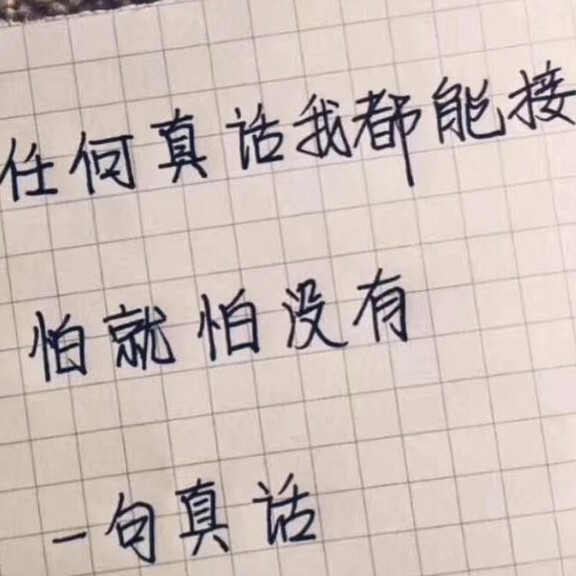 任何真话我都能接
怕就怕没有
一句真话